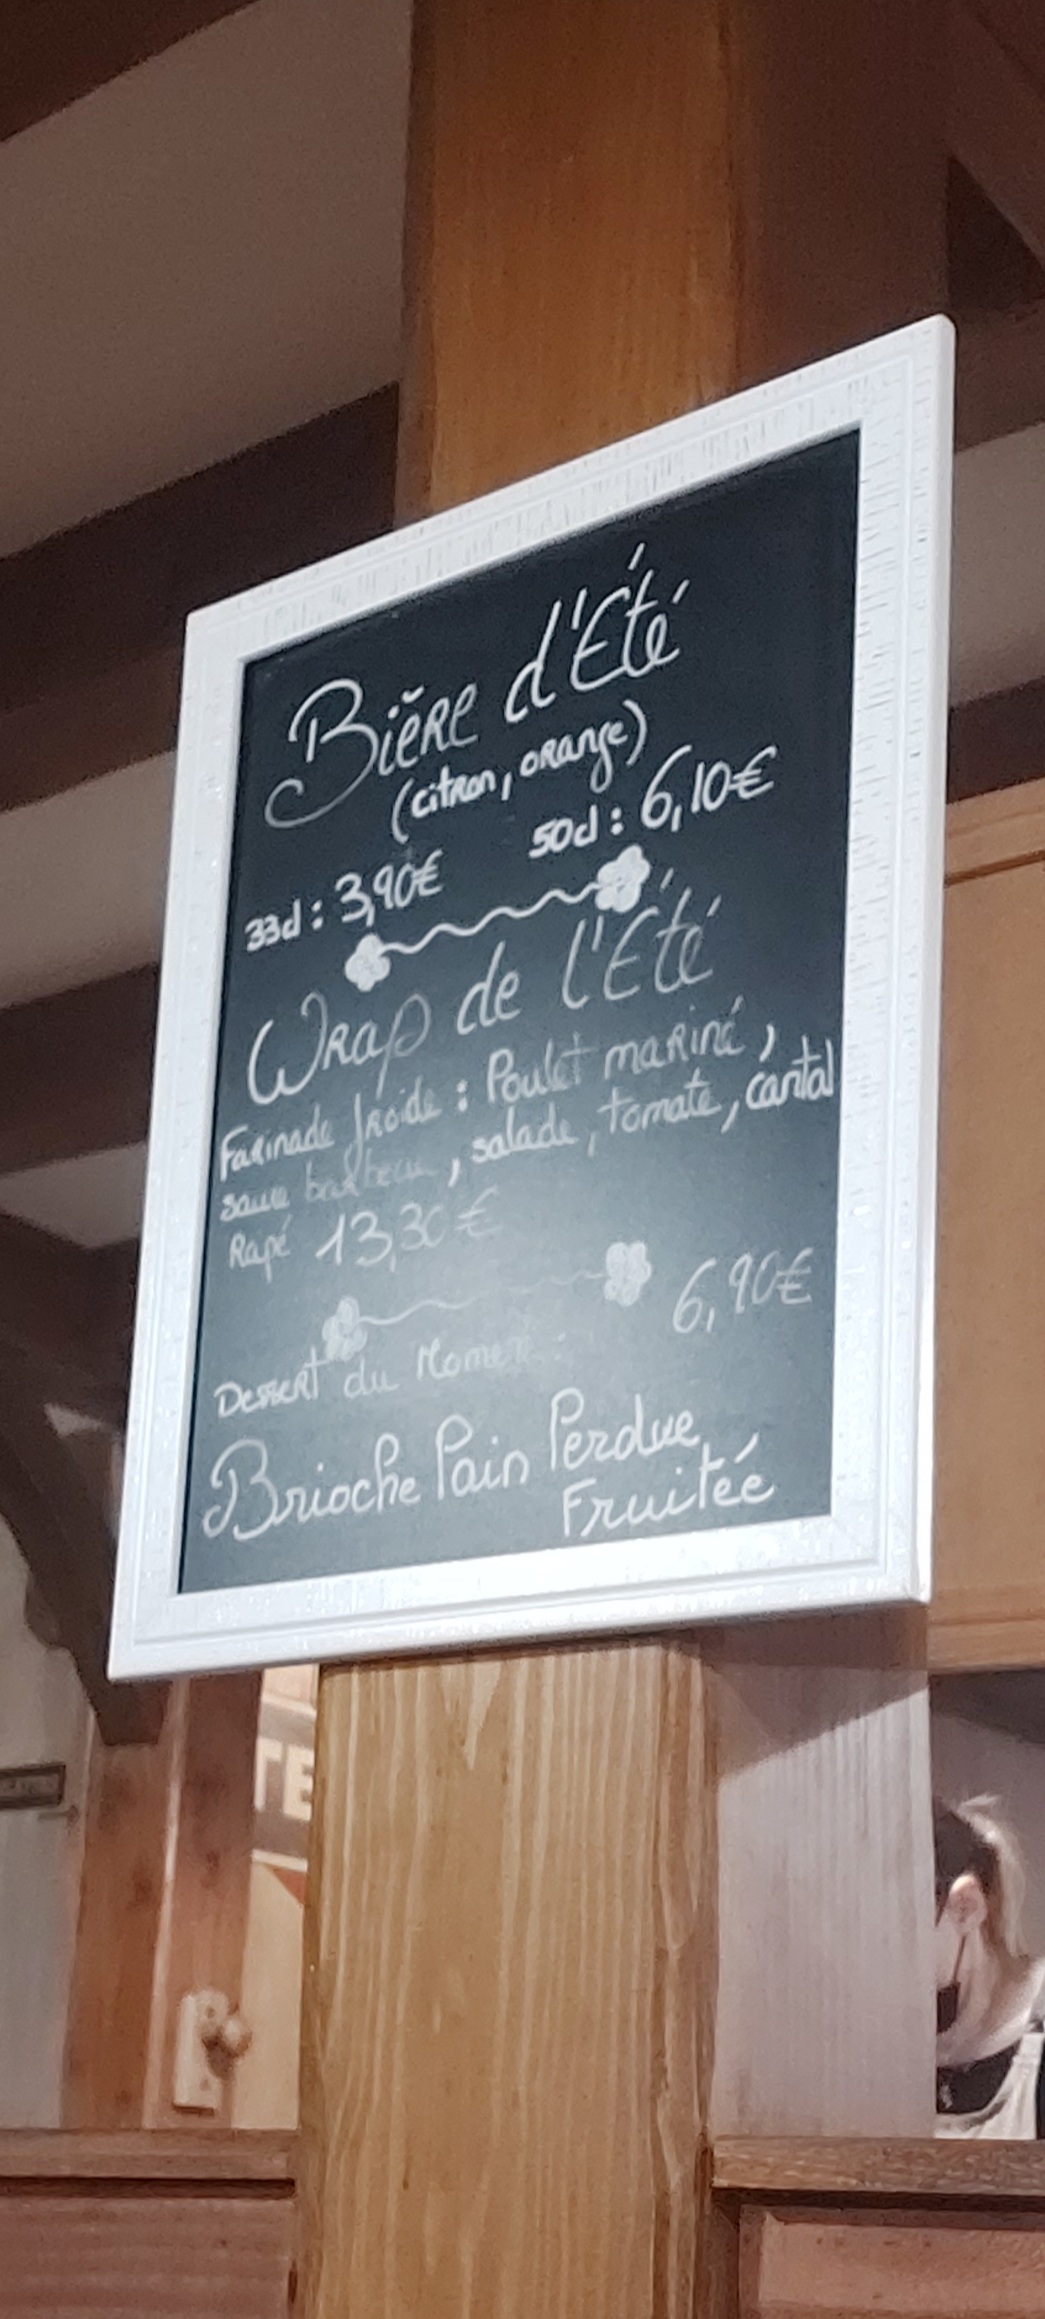 Bière d'Été
(citron, orange)
33cl : 3,90€ 50cl : 6,10€
Wrap de l'Été
Farinade froide : Poulet mariné,
sauce barbecue, salade, tomate, cantal
Rapé 13,30€
6,90€
Dessert du Moment :
Brioche Pain Perdue
Fruitéé
TE